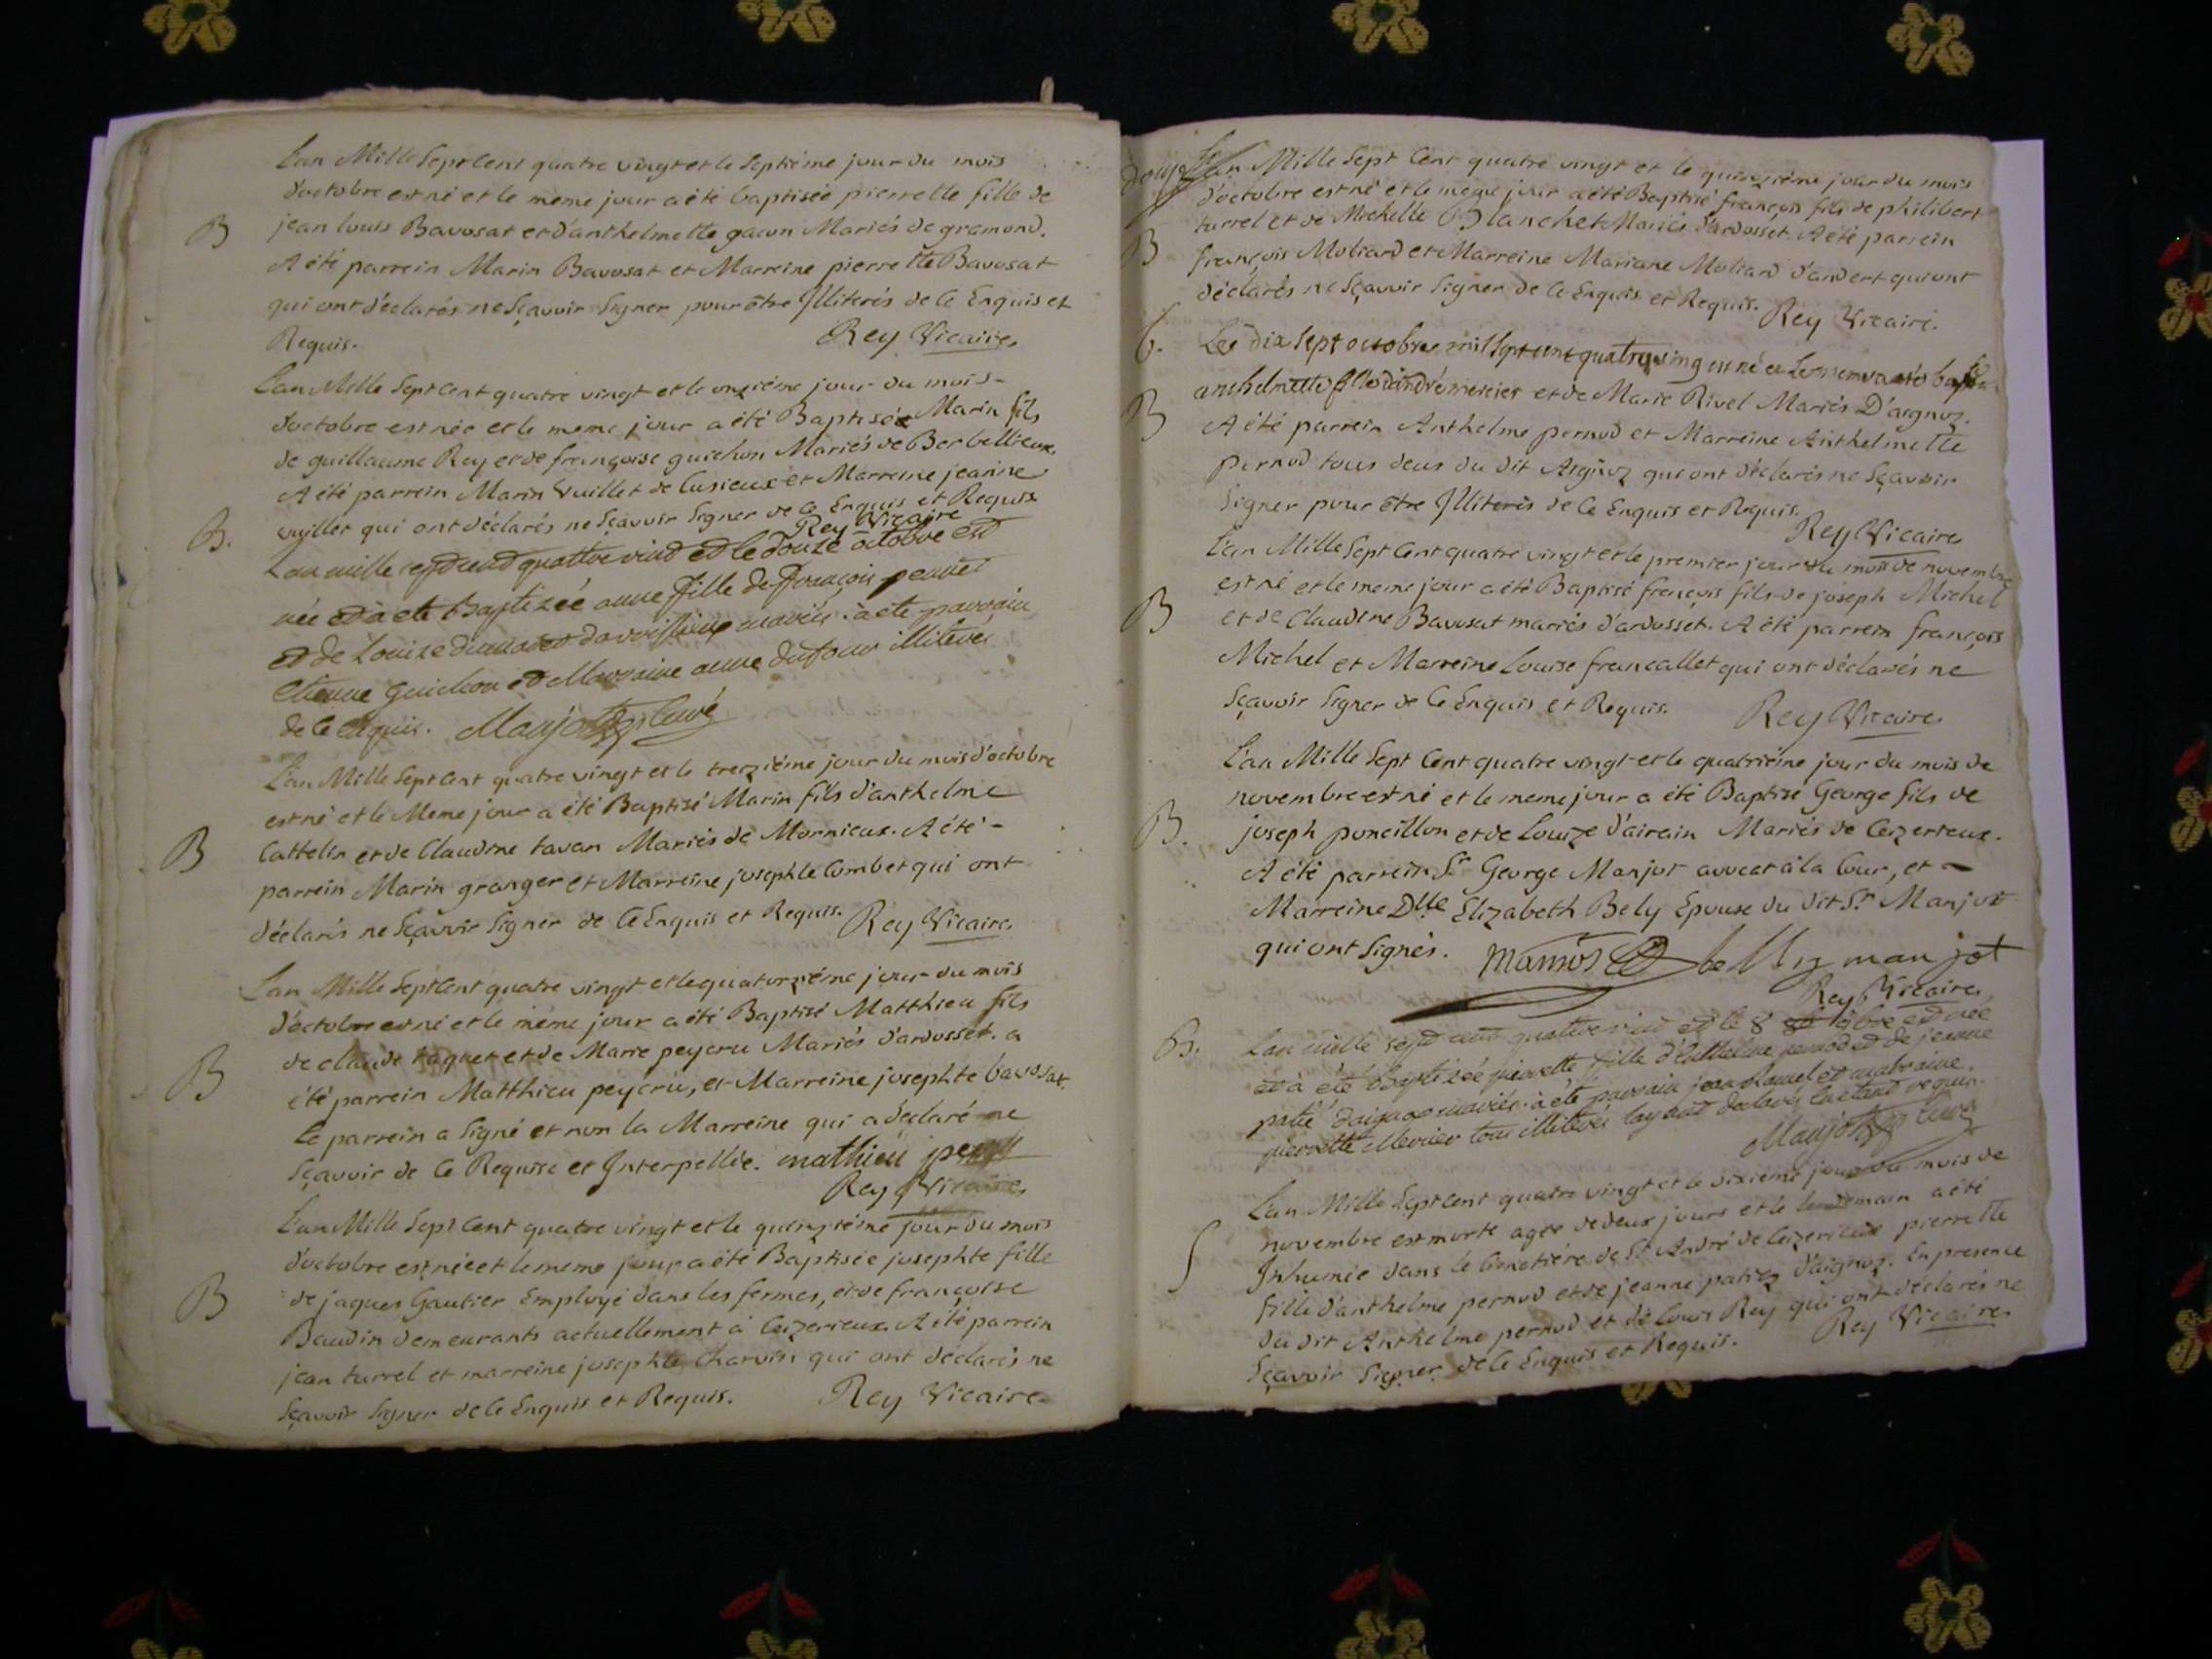 L'an Mille Sept Cent quatre vingt et le Septiéme jour du mois
d'octobre est né et le meme jour a été baptisée pierrette fille de
B jean louis Bavosat et d'anthelmette gacon Mariés de gramond.
A été parrein Marin Bavosat et Marreine pierrette Bavosat
qui ont déclarés ne Sçavoir Signer pour être Jlliterés de ce Enquis et
Requis. Rey Vicaire
L'an Mille Sept Cent quatre vingt et le onziéme jour du mois
d'octobre est née et le meme jour a été Baptisée Marin fils
de guillaume Rey et de françoise guichon Mariés de Berbellieux.
A été parrein Marin Vuillet de Cusieux et Marreine jeanne
B. vuillet qui ont déclarés ne Sçavoir Signer de ce Enquis et Requis
Rey Vicaire
L'an mille sept cent quattre vint et le douze octobre est
née et à eté baptizéé anne fille de françois
et de Louize mariés. à eté parrain
etienne Guichon et Marraine anne dufour illiterés
de ce enquis. Manjot curé
L'an Mille Sept Cent quatre vingt et le treiziéme jour du mois d'octobre
est né et le Meme jour a été Baptisé Marin fils d'anthelme
B Cattelin et de Claudine tavan Mariés de Mornieux. A été
parrein Marin granger et Marreine josephte Combet qui ont
déclarés ne Sçavoir Signer de Ce Enquis et Requis. Rey Vicaire
L'an Mille Sept Cent quatre vingt et le quatorziéme jour du mois
d'octobre est né et le méme jour a été Baptisé Matthieu fils
de claude taquet et de Marie peycru Mariés d'ardosset. a
B été parrein Matthieu peycru, et Marreine josephte bavosat
Le parrein a Signé et non la Marreine qui a déclaré ne
Sçavoir de Ce Requise et Interpellée. mathieu
Rey Vicaire
L'an Mille Sept Cent quatre vingt et le quinziéme jour du mois
d'octobre est née et le meme jour a été Baptisée josephte fille
B de jaques Gautier Employé dans les fermes, et de françoise
Baudin demeurants actuellement à Ceizerieux. A été parrein
jean turrel et marreine josephte Charvin qui ont déclarés ne
Sçavoir Signer de Ce Enquis et Requis. Rey Vicaire
L'an Mille Sept Cent quatre vingt et le quinziéme jour du mois
d'octobre est né et le meme jour a été Baptisé françois fils de philibert
turrel et de Michelle Blanchet Mariés d'ardosset. A été parrein
B françois Moliard et Marreine Mariane Moliard d'andert qui ont
déclarés ne Sçavoir Signer de Ce Enquis et Requis. Rey Vicaire.
6. Le dix Sept octobre mil Sept cent quatre ving est né et
anthelmette fille d'andré mercier et de Marie Rivel Mariés D'aignoz.
B A été parrein Anthelme pernod et Marreine Anthelmette
pernod tous deus du dit Aignoz qui ont déclarés ne Sçavoir
Signer pour être Jlliterés de Ce Enquis et Requis.
Rey Vicaire
L'an Mille Sept Cent quatre vingt et le premier jour du mois de novembre
est né et le meme jour a été Baptisé françois fils de joseph Michel
B et de Claudine Bavosat mariés d'ardosset. A été parrein françois
Michel et Marreine Louise francallet qui ont déclarés ne
Sçavoir Signer de Ce Enquis et Requis. Rey Vicaire
L'an Mille Sept Cent quatre vingt et le quatriéme jour du mois de
novembre est né et le meme jour a été Baptisé George fils de
B. joseph poncillon et de Louize d'airain Mariés de Ceizerieux.
A été parrein Sr George Manjot avocat à la Cour, et
Marreine Dlle Elizabeth Bely Epouse du dit Sr Manjot
qui ont Signés. manjot belly manjot
Rey Vicaire
B. L'an mille sept cent quattre vint et le 8 9bre est née
et à été baptizéé pierrette fille d'Anthelme pernod et de jeanne
patié d'aignoz mariés. à été parrain et marraine
pierrette Mercier tous illiterés layant declaré
Manjot curé
L'an Mille Sept Cent quatre vingt et le dixiéme jour du mois de
novembre est morte agée de deux jours et le lendemain a été
S Inhumée dans le Cimetiére de St André de Ceizerieux pierrette
fille d'anthelme pernod et de jeanne patiez d'aignoz. En presence
du dit Anthelme pernod et de Louis Rey qui ont déclarés ne
Sçavoir Signer de Ce Enquis et Requis. Rey Vicaire